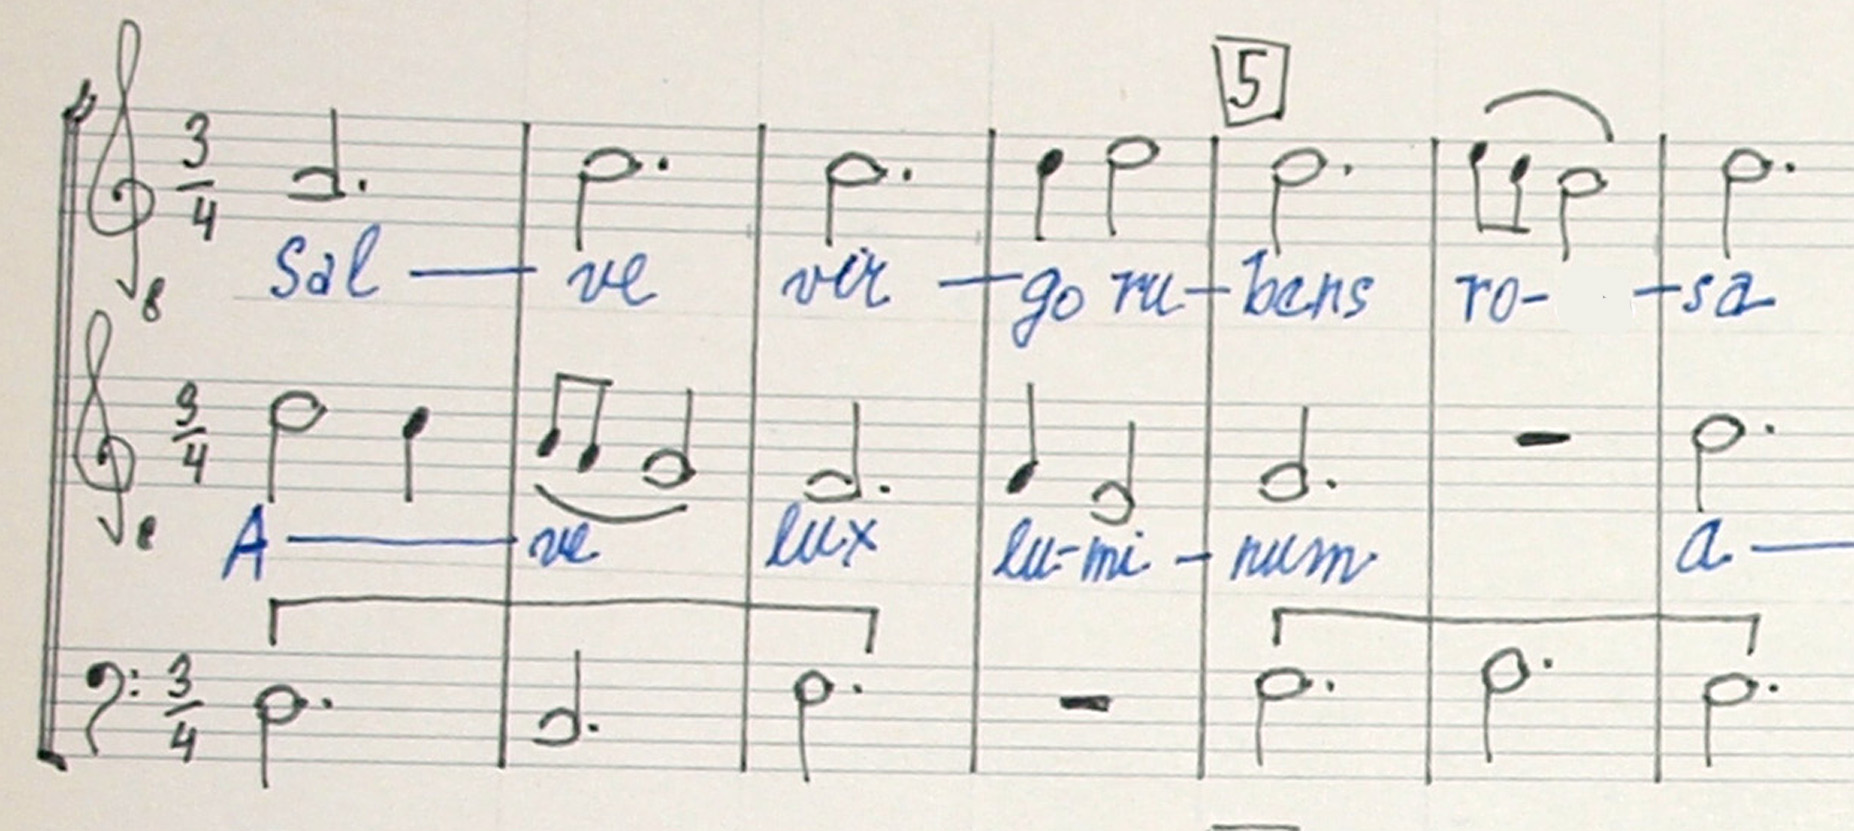 5
3
4
Sal — ve vir — go ru — bens ro- — sa
8
3
4
A — ve lux lu-mi - num a —
8
3
4